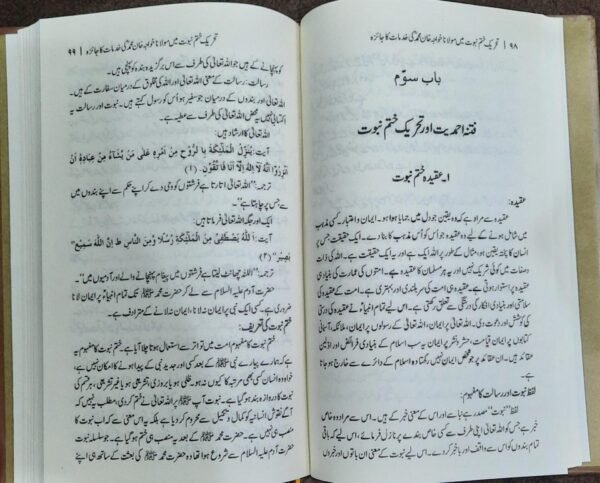 ۹۸ | تحریک ختم نبوت میں مولانا خواجہ خان محمد کی خدمات کا جائزہ
باب سوم
فتنہ احمدیت اور تحریک ختم نبوت
۱۔ عقیدہ ختم نبوت
عقیدہ:
عقیدہ سے مراد ہے کہ وہ یقین جو دل میں جمایا ہوا ہو۔ ایمان و اعتبار۔ کسی مذہب
میں شامل ہونے کے لیے وہ عقیدہ جو اُس کو اُس مذہب کا بنا دے۔ یعنی ایک حقیقت جس پر
ایک انسان کا پختہ یقین ہو، مثال کے طور پر اللہ ایک ہے، یہ ایک حقیقت ہے۔ اللہ کی ذات
و صفات میں کوئی شریک نہیں اور یہ ہر مسلمان کا عقیدہ ہے۔ امتوں کی عمارت کی بنیادی
اینٹ عقیدہ ہی ہوتی ہے۔ عقیدہ ہی امت کی سربلندی اور بہتری ہے۔ امت کے عقیدے کی
سلامتی اور بنیادی افکار کی درستگی سے تعلق رکھتی ہے۔ اس لیے تمام انبیاءؑ نے عقیدہ کی درستی
کی کوشش اور دعوت دی۔ اللہ تعالیٰ پر ایمان، اللہ تعالیٰ کے رسولوں پر ایمان، ملائکہ، آسمانی
کتابوں پر ایمان، قیامت، حشر و نشر پر ایمان یہ سب اسلام کے بنیادی فرائض اور اولین
عقائد ہیں۔ ان عقائد پر جو شخص ایمان نہیں رکھتا وہ اسلام کے دائرے سے خارج ہو جاتا
ہے۔
لفظ نبوت اور رسالت کا مفہوم:
لفظ "نبوت" مصدر ہے نبا سے اور اس کے معنی خبر کے ہیں۔ اس سے مراد وہ خاص
خبر ہے جو اللہ تعالیٰ اپنی طرف سے کسی خاص بندے پر نازل فرمائے، اس لیے کہ باقی
تمام بندوں کو اس سے واقف اور باخبر کر دے۔ اس لیے نبوت کے معنی ان باتوں اور خبروں
تحریک ختم نبوت میں مولانا خواجہ خان محمد کی خدمات کا جائزہ | ۹۹
کو پہنچانے کے ہیں جو اللہ تعالیٰ کی طرف سے اس برگزیدہ بندہ کو پہنچی ہیں۔
رسالت۔ رسالت کے معنی ہیں اللہ تعالیٰ اور اللہ کی مخلوق کے درمیان سفارت کے ہیں۔
اللہ تعالیٰ اور بندوں کے درمیان جو سفیر ہو اُس کو رسول کہتے ہیں۔ نبوت اور رسالت یہ
اکتسابی نہیں یہ محض اللہ تعالیٰ کی طرف سے عطیہ ہے۔
اللہ تعالیٰ کا ارشاد ہیں:
آیت: يُنَزِّلُ الْمَلٰئِكَةَ بِالرُّوْحِ مِنْ اَمْرِهٖ عَلٰى مَنْ يَّشَاءُ مِنْ عِبَادِهٖ اَنْ
اَنْذِرُوْا اَنَّهٗ لَا اِلٰهَ اِلَّا اَنَا فَاتَّقُوْنِ۔ (۱)
ترجمہ: "اللہ تعالیٰ اتارتا ہے فرشتوں کو وحی دے کر اپنے حکم سے اپنے بندوں میں
سے جس پر چاہتا ہے"۔
ایک اور جگہ اللہ تعالیٰ فرماتا ہیں:
آیت: اَللّٰهُ يَصْطَفِيْ مِنَ الْمَلٰئِكَةِ رُسُلًا وَّمِنَ النَّاسِ ط اِنَّ اللّٰهَ سَمِيْعٌ
بَصِيْرٌ" (۲)
ترجمہ: "اللہ چھانٹ لیتا ہے فرشتوں میں پیغام پہنچانے والے اور آدمیوں میں"۔
حضرت آدم علیہ السلام سے لے کر حضرت محمد ﷺ تک تمام انبیاءؑ پر ایمان لانا
ضروری ہے۔ کسی ایک نبی پر ایمان نہ لانا، ایمان نہ لانے کے مترادف ہے۔
ختم نبوت کی تعریف:
ختم نبوت کا مفہوم امت میں تواتر سے استعمال ہوتا چلا آیا ہے۔ ختم نبوت کا مفہوم یہ
ہے کہ ہمارے پیارے نبی ﷺ کے بعد کسی اور جدید نبی کے پیدا ہونے کا امکان نہیں ہے،
خواہ وہ انسان کسی بھی مرتبہ کا کیوں نہ ہو ظلی ہو یا بروزی، تشریعی ہو یا غیر تشریعی، ہر قسم کی
نبوت کا دروازہ بند ہو گیا ہے۔ نبوت آپ ﷺ پر اللہ تعالیٰ نے ختم کر دی، مطلب یہ نہیں کہ
آگے نفوس انسانیہ کو کمال و تکمیل سے محروم کر دیا ہے بلکہ یہ اس معنی سے کہ اب نبوت کا
منصب ہی نہیں ہے۔ حضرت محمد ﷺ کے بعد یہ منصب ہی ختم ہو گیا ہے۔ جو سلسلہ نبوت
حضرت آدم علیہ السلام سے شروع ہوا تھا وہ حضرت محمد ﷺ کی بعثت کے ساتھ ہی اپنے